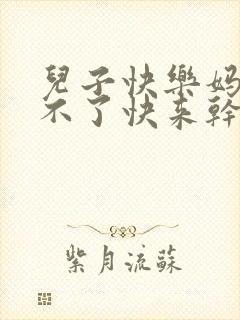 兒子快樂妈
不了快来幹
紫月流蘇